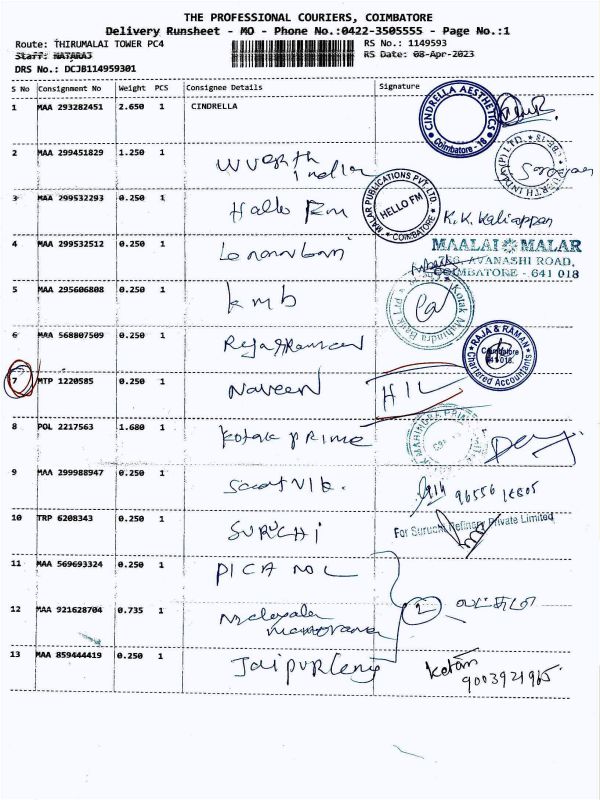 THE PROFESSIONAL COURIERS, COIMBATORE
Delivery Runsheet - MO - Phone No.:0422-3505555 - Page No.:1
Route: THIRUMALAI TOWER PC4
RS No.: 1149593
Staff: NATARAJ
RS Date: 08-Apr-2023
DRS No.: DCJB114959301
S No Consignment No Weight PCS Consignee Details Signature
1 MAA 293282451 2.650 1 CINDRELLA
CINDRELLA AESTHETICS
Coimbatore - 16
2 MAA 299451829 1.250 1 wuerth india
3 MAA 299532293 0.250 1 Hallo Fm
MALAR PUBLICATIONS PVT LTD
HELLO FM
COIMBATORE
K.K. Kaliappan
4 MAA 299532512 0.250 1
MAALAI MALAR
AVANASHI ROAD,
COIMBATORE - 641 018
5 MAA 295606808 0.250 1 kmb
Kotak Mahindra Bank Ltd
6 MAA 568807509 0.250 1
RAJA & RAMAN
Coimbatore
641 018.
Chartered Accountants
7 MTP 1220585 0.250 1 Naveen
HIL
8 POL 2217563 1.680 1 Kotak prime
MAHINDRA PRIME
9 MAA 299988947 0.250 1
10 TRP 6208343 0.250 1 SURUCHI
For Suruchi Refinery Private Limited
11 MAA 569693324 0.250 1 PICANOL
12 MAA 921628704 0.735 1 Malayala manorama
2
13 MAA 859444419 0.250 1 Jaipur
ketan
9003921965